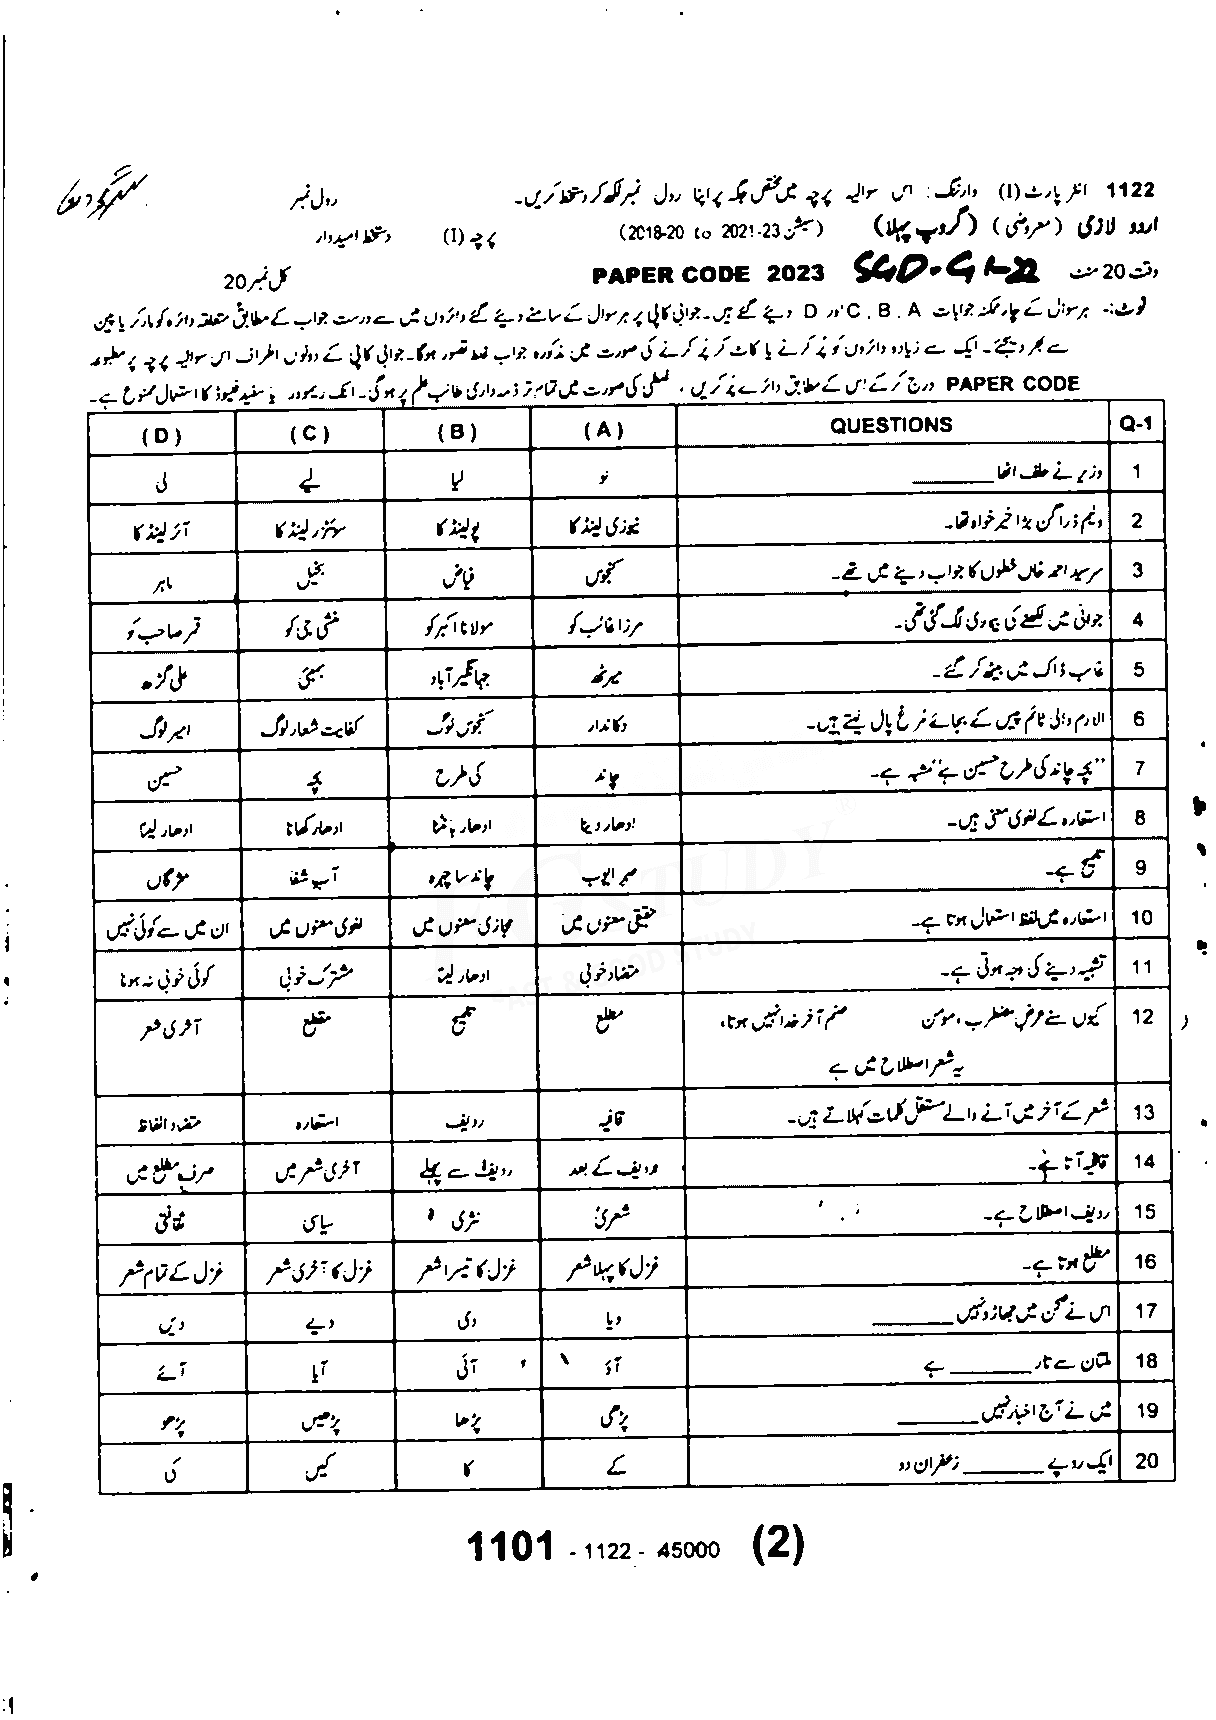 سرگودھا
1122 انٹر پارٹ (I) وارننگ: اس سوالیہ پرچہ میں مختص جگہ پر اپنا رول نمبر لکھ کر دستخط کریں۔ رول نمبر
اردو لازمی (معروضی) (گروپ پہلا) (سیشن 2018-20 to 2021-23) پرچہ (I) دستخط امیدوار
وقت 20 منٹ SGD-G1-22 PAPER CODE 2023 کل نمبر 20
نوٹ:۔ ہر سوال کے چار ممکنہ جوابات C, B, A اور D دیئے گئے ہیں۔ جوابی کاپی پر ہر سوال کے سامنے دیئے گئے دائروں میں سے درست جواب کے مطابق متعلقہ دائرہ کو مارکر یا پین
سے بھر دیجئے۔ ایک سے زیادہ دائروں کو پُر کرنے یا کاٹ کر پُر کرنے کی صورت میں مذکورہ جواب غلط تصور ہوگا۔ جوابی کاپی کے دونوں اطراف اس سوالیہ پرچہ پر مطبوعہ
PAPER CODE درج کر کے اس کے مطابق دائرے پُر کریں، غلطی کی صورت میں تمام تر ذمہ داری طالب علم پر ہوگی۔ انک ریموور یا سفید فلیوڈ کا استعمال ممنوع ہے۔
Q-1 QUESTIONS (A) (B) (C) (D)
1 وزیر نے حلف اٹھا ______ لو لیا لیے لی
2 ولیم ڈراگن بڑا خیر خواہ تھا۔ نیوزی لینڈ کا پولینڈ کا سوئٹزرلینڈ کا آئرلینڈ کا
3 سرسید احمد خاں خطوں کا جواب دینے میں تھے۔ کنجوس فیاض بخیل ماہر
4 جوانی میں لکھنے کی بیماری لگ گئی تھی۔ مرزا غالب کو مولانا اکبر کو منشی جی کو قمر صاحب کو
5 غالب ڈاک میں بیٹھ کر گئے۔ میرٹھ جہانگیر آباد بمبئی علی گڑھ
6 الارم والی ٹائم پیس کے بجائے مرغ پال لیتے ہیں۔ دکاندار کنجوس لوگ کفایت شعار لوگ امیر لوگ
7 "بچہ چاند کی طرح حسین ہے" مشبہ ہے۔ چاند کی طرح بچہ حسین
8 استعارہ کے لغوی معنی ہیں۔ ادھار دینا ادھار بانٹنا ادھار کھانا ادھار لینا
9 تلمیح ہے۔ صبر ایوب چاند سا چہرہ آب شفا مژگاں
10 استعارہ میں لفظ استعمال ہوتا ہے۔ حقیقی معنوں میں مجازی معنوں میں لغوی معنوں میں ان میں سے کوئی نہیں
11 تشبیہ دینے کی وجہ ہوتی ہے۔ متضاد خوبی ادھار لینا مشترک خوبی کوئی خوبی نہ ہونا
12 کیوں سنے عرض مضطرب، مومن صنم آخر خدا نہیں ہوتا، مطلع تلمیح مقطع آخری شعر
یہ شعر اصطلاح میں ہے
13 شعر کے آخر میں آنے والے مستقل کلمات کہلاتے ہیں۔ قافیہ ردیف استعارہ متضاد الفاظ
14 قافیہ آتا ہے۔ ردیف کے بعد ردیف سے پہلے آخری شعر میں صرف مطلع میں
15 ردیف اصطلاح ہے۔ شعری نثری سیاسی ثقافتی
16 مطلع ہوتا ہے۔ غزل کا پہلا شعر غزل کا تیسرا شعر غزل کا آخری شعر غزل کے تمام شعر
17 اس نے صحن میں جھاڑو نہیں ______ دیا دی دیے دیں
18 ملتان سے تار ______ ہے آؤ آئی آیا آئے
19 میں نے آج اخبار نہیں ______ پڑھی پڑھا پڑھیں پڑھو
20 ایک روپے ______ زعفران دو کے کا کیں کی
1101 - 1122 - 45000 (2)